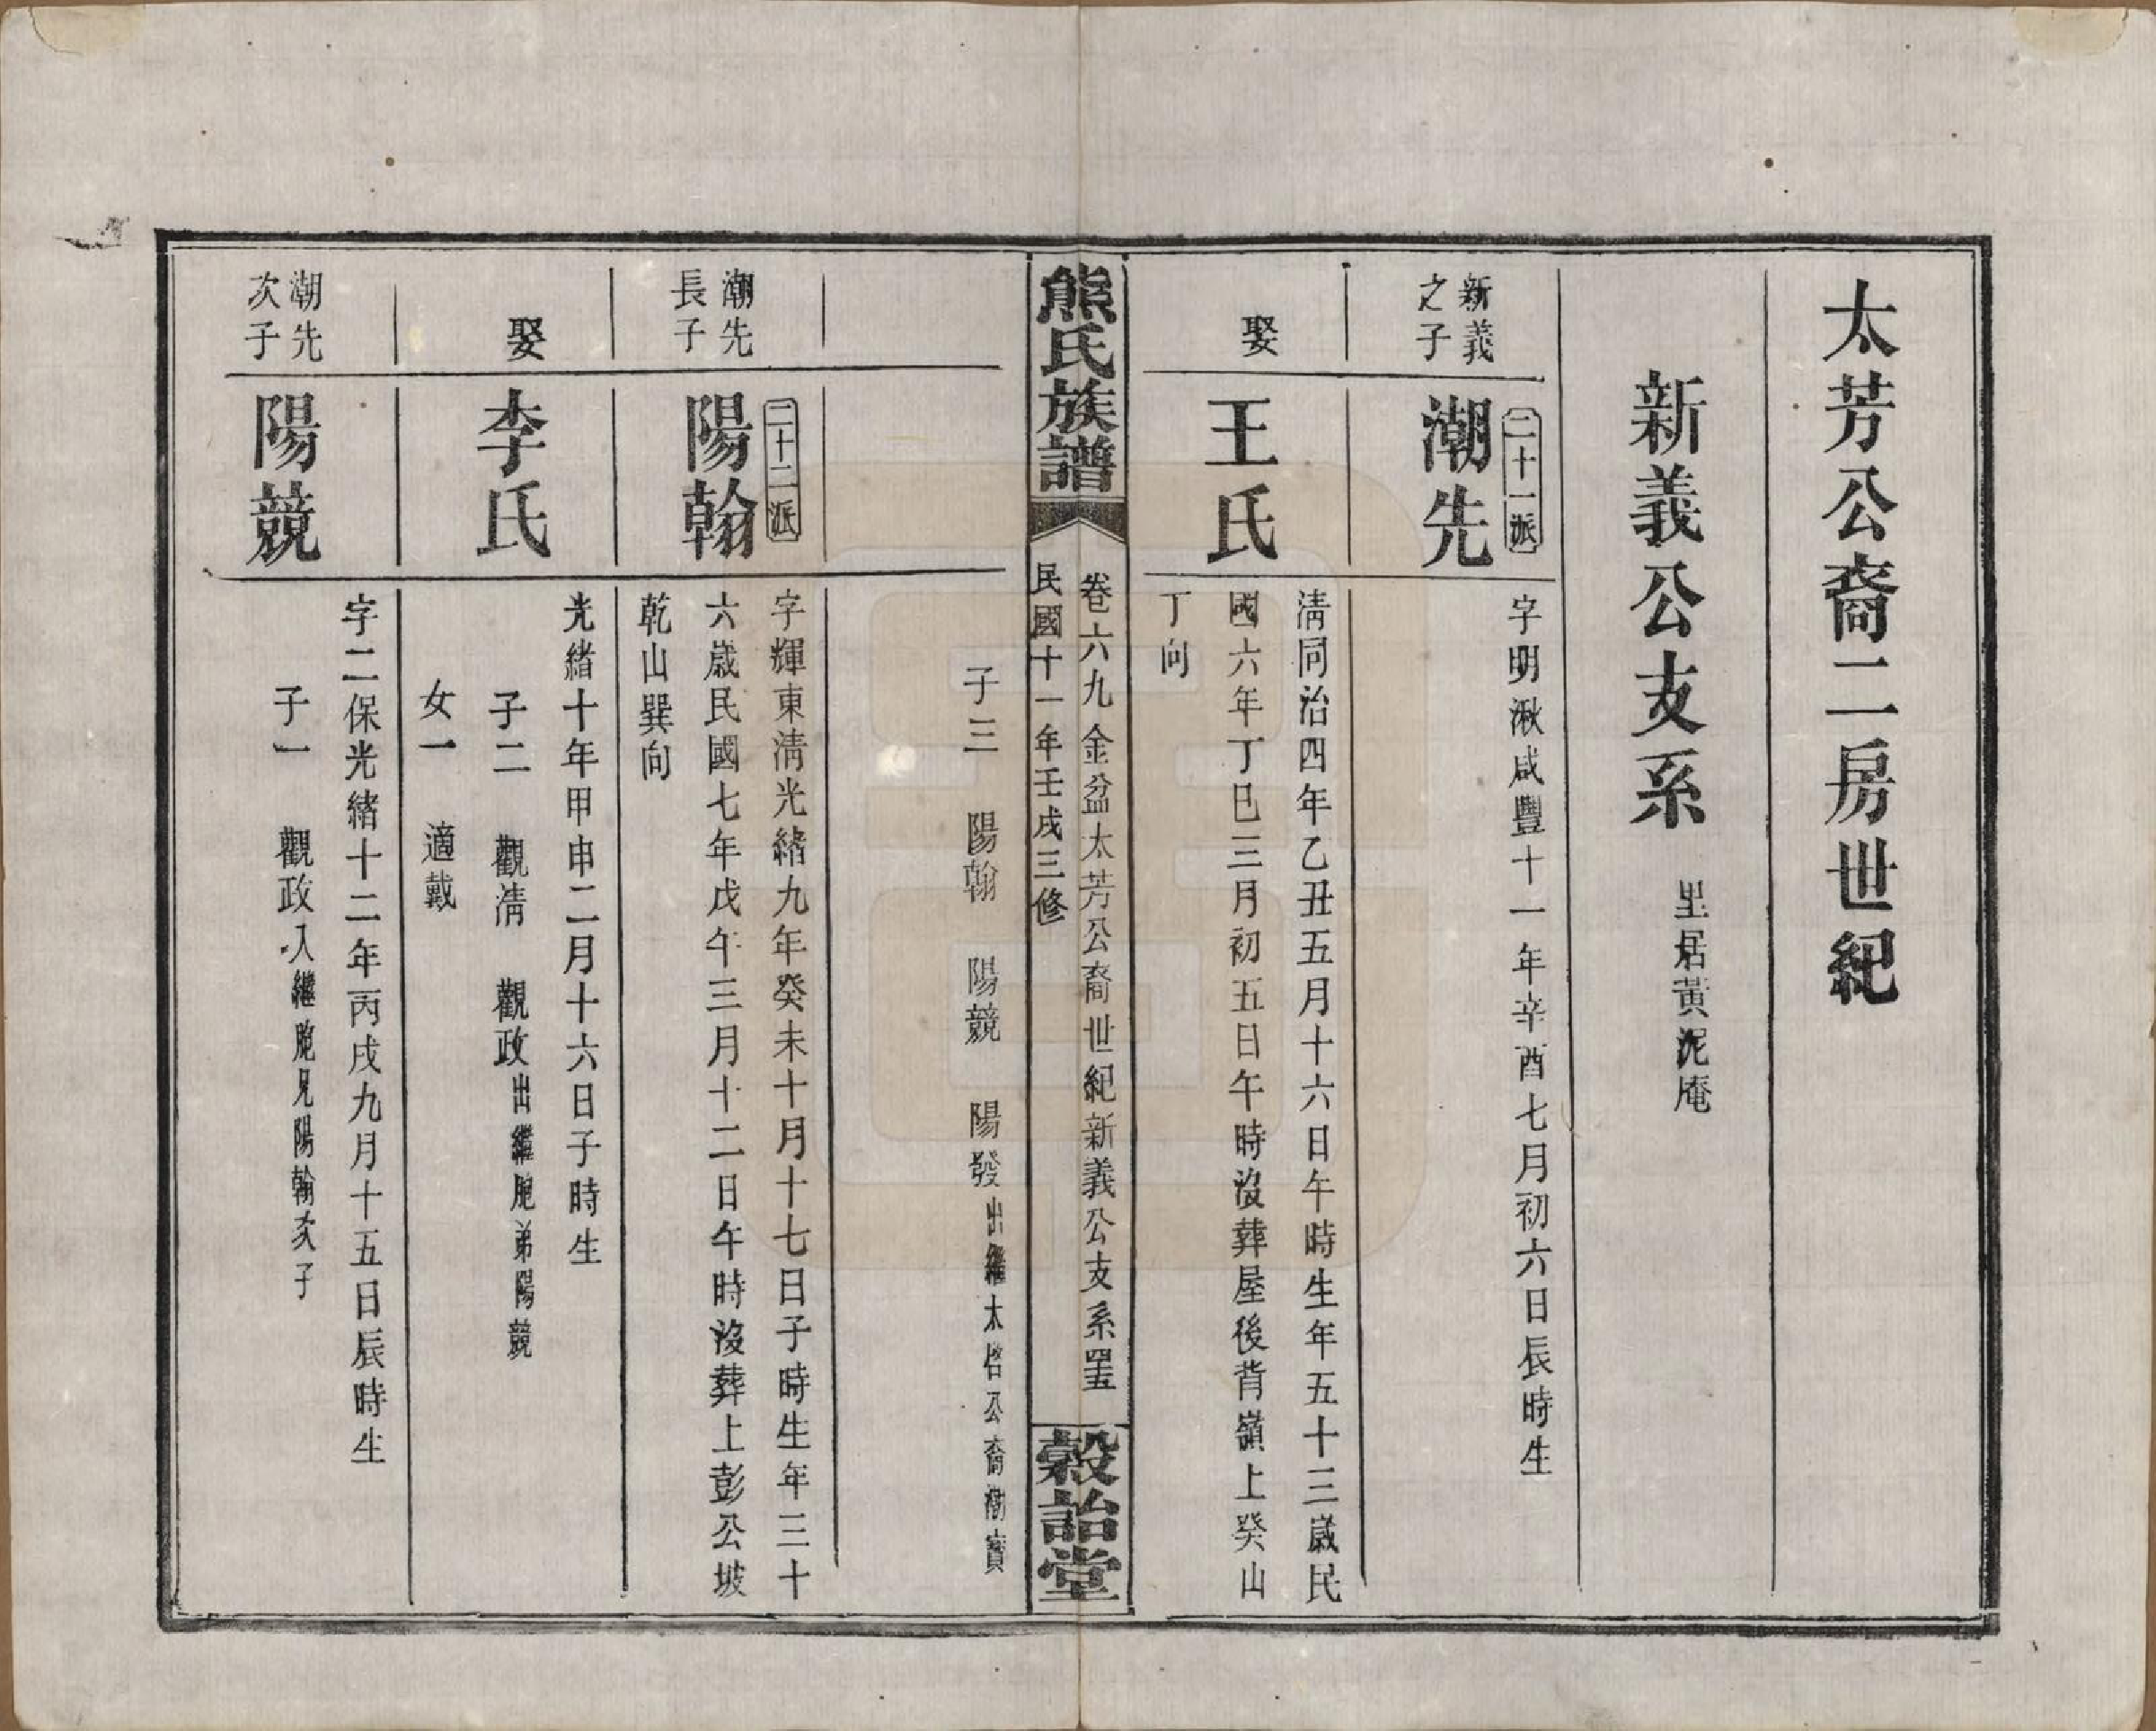 太芳公裔二房世紀
新義公支系
里居黃泥庵
新義
之子
二十一派
潮先
字明湫咸豐十一年辛酉七月初六日辰時生
娶
王氏
淸同治四年乙丑五月十六日午時生年五十三歲民
國六年丁巳三月初五日午時沒葬屋後背嶺上癸山
丁向
熊氏族譜
卷六九金盆太芳公裔世紀新義公支系
民國十一年壬戌三修
穀詒堂
子三　陽翰　陽競　陽發出繼太啓公裔潮寶
潮先
長子
二十二派
陽翰
字輝東淸光緒九年癸未十月十七日子時生年三十
六歲民國七年戊午三月十二日午時沒葬上彭公坡
乾山巽向
娶
李氏
光緒十年甲申二月十六日子時生
子二　觀淸　觀政出繼胞弟陽競
女一　適戴
潮先
次子
陽競
字二保光緒十二年丙戌九月十五日辰時生
子一　觀政入繼胞兄陽翰次子